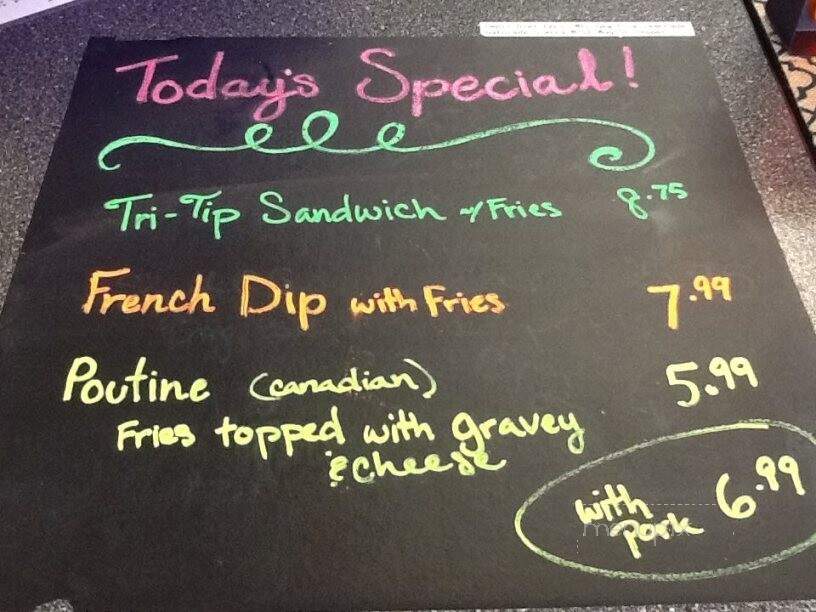 Today's Special!
Tri-Tip Sandwich w/ Fries 8.75
French Dip with Fries 7.99
Poutine (canadian) 5.99
Fries topped with gravey
& cheese
with pork 6.99